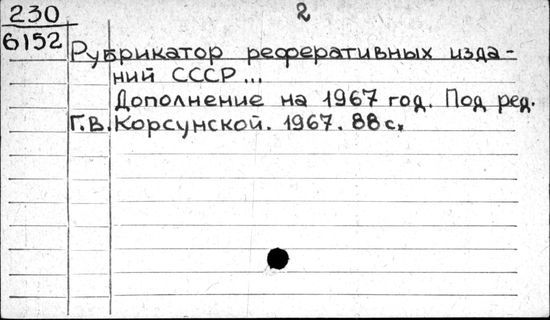 230
6152
2
Рубрикатор реферативных изда-
ний СССР...
Дополнение на 1967 год. Под ред.
Г.В. Корсунской. 1967. 88 с.